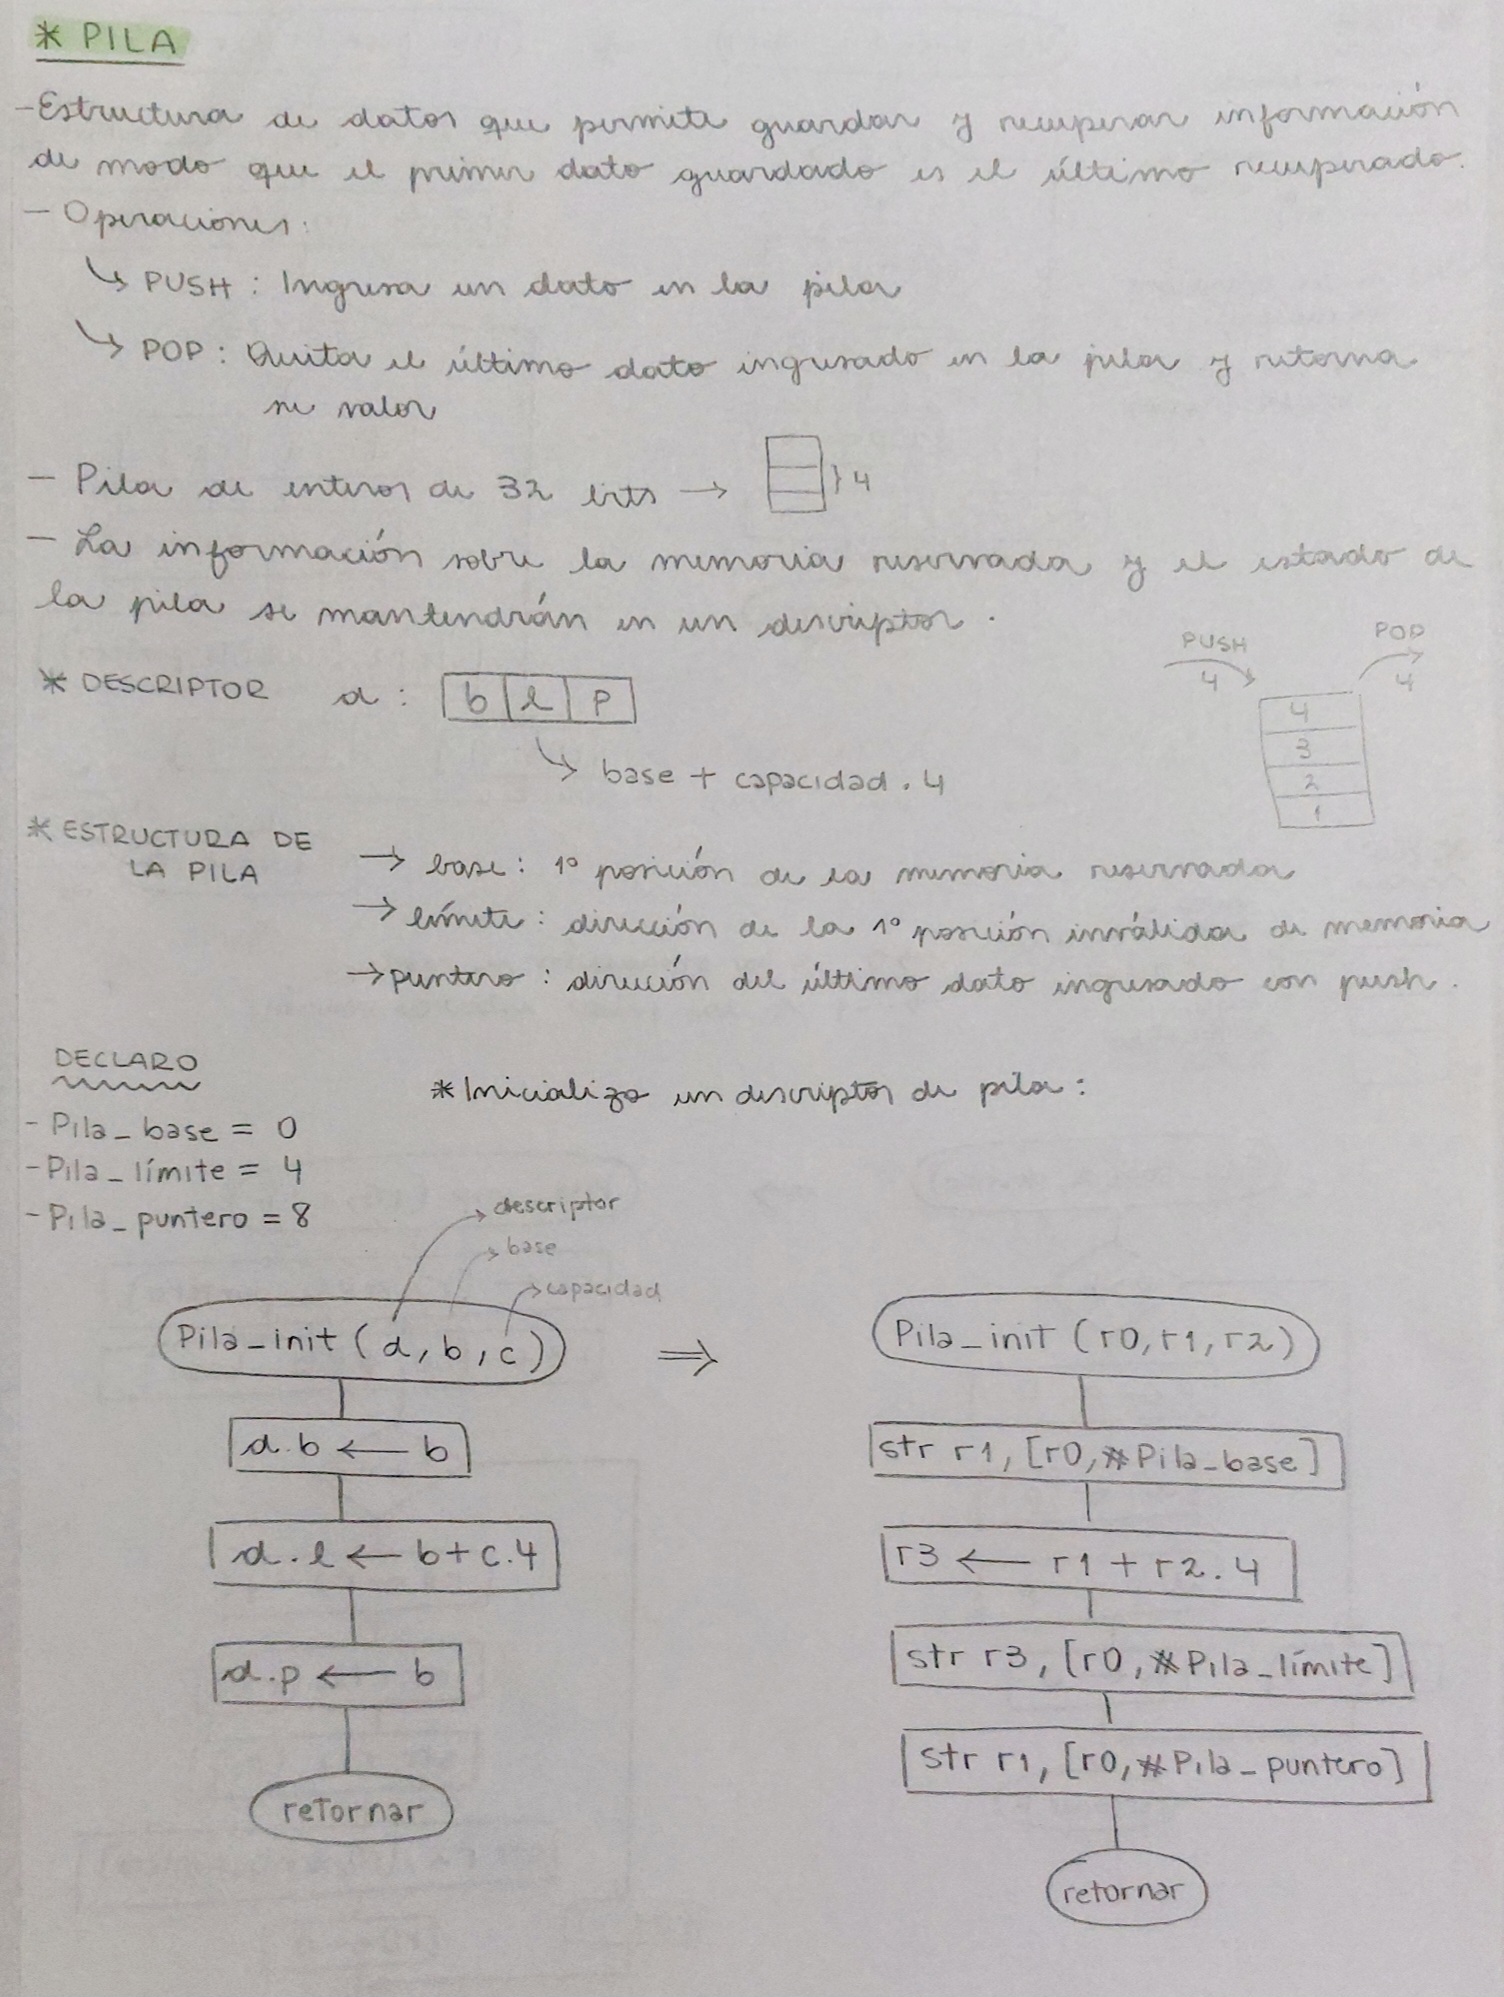 * PILA
- Estructura de datos que permite guardar y recuperar información
de modo que el primer dato guardado es el último recuperado.
- Operaciones:
↳ PUSH : Ingresa un dato en la pila
↳ POP : Quita el último dato ingresado en la pila y retorna
su valor
- Pila de enteros de 32 bits → } 4
- La información sobre la memoria reservada y el estado de
la pila se mantendrán en un descriptor.
PUSH
4
POP
4
4
3
2
1
* DESCRIPTOR d : b l p
↳ base + capacidad . 4
* ESTRUCTURA DE
LA PILA
→ base : 1° posición de la memoria reservada
→ límite : dirección de la 1° posición inválida de memoria
→ puntero : dirección del último dato ingresado con push.
DECLARO
- Pila_base = 0
- Pila_límite = 4
- Pila_puntero = 8
* Inicializo un descriptor de pila :
→ descriptor
→ base
→ capacidad
Pila_init (d, b, c)
d.b ← b
d.l ← b + c.4
d.p ← b
retornar
⇒
Pila_init (r0, r1, r2)
str r1, [r0, #Pila_base]
r3 ← r1 + r2.4
str r3, [r0, #Pila_límite]
str r1, [r0, #Pila_puntero]
retornar